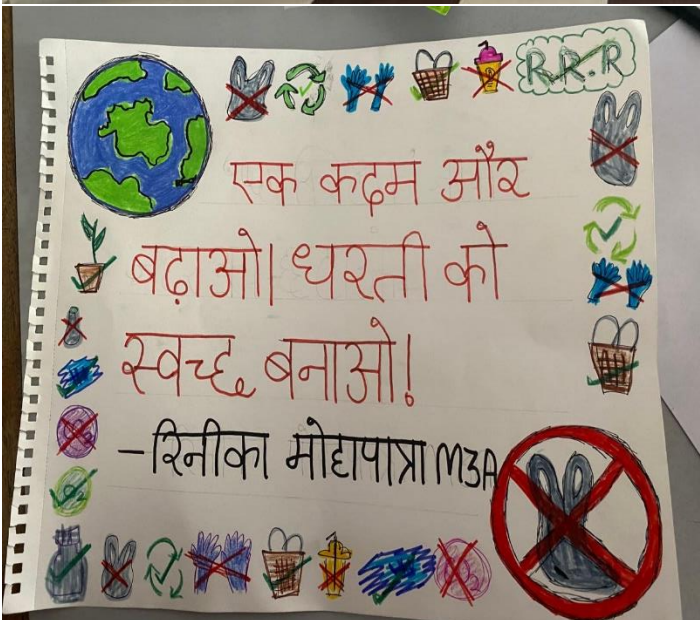 R.R.R
एक कदम और
बढ़ाओ। धरती को
स्वच्छ बनाओ!
-रिनीका मोहापात्रा M3A